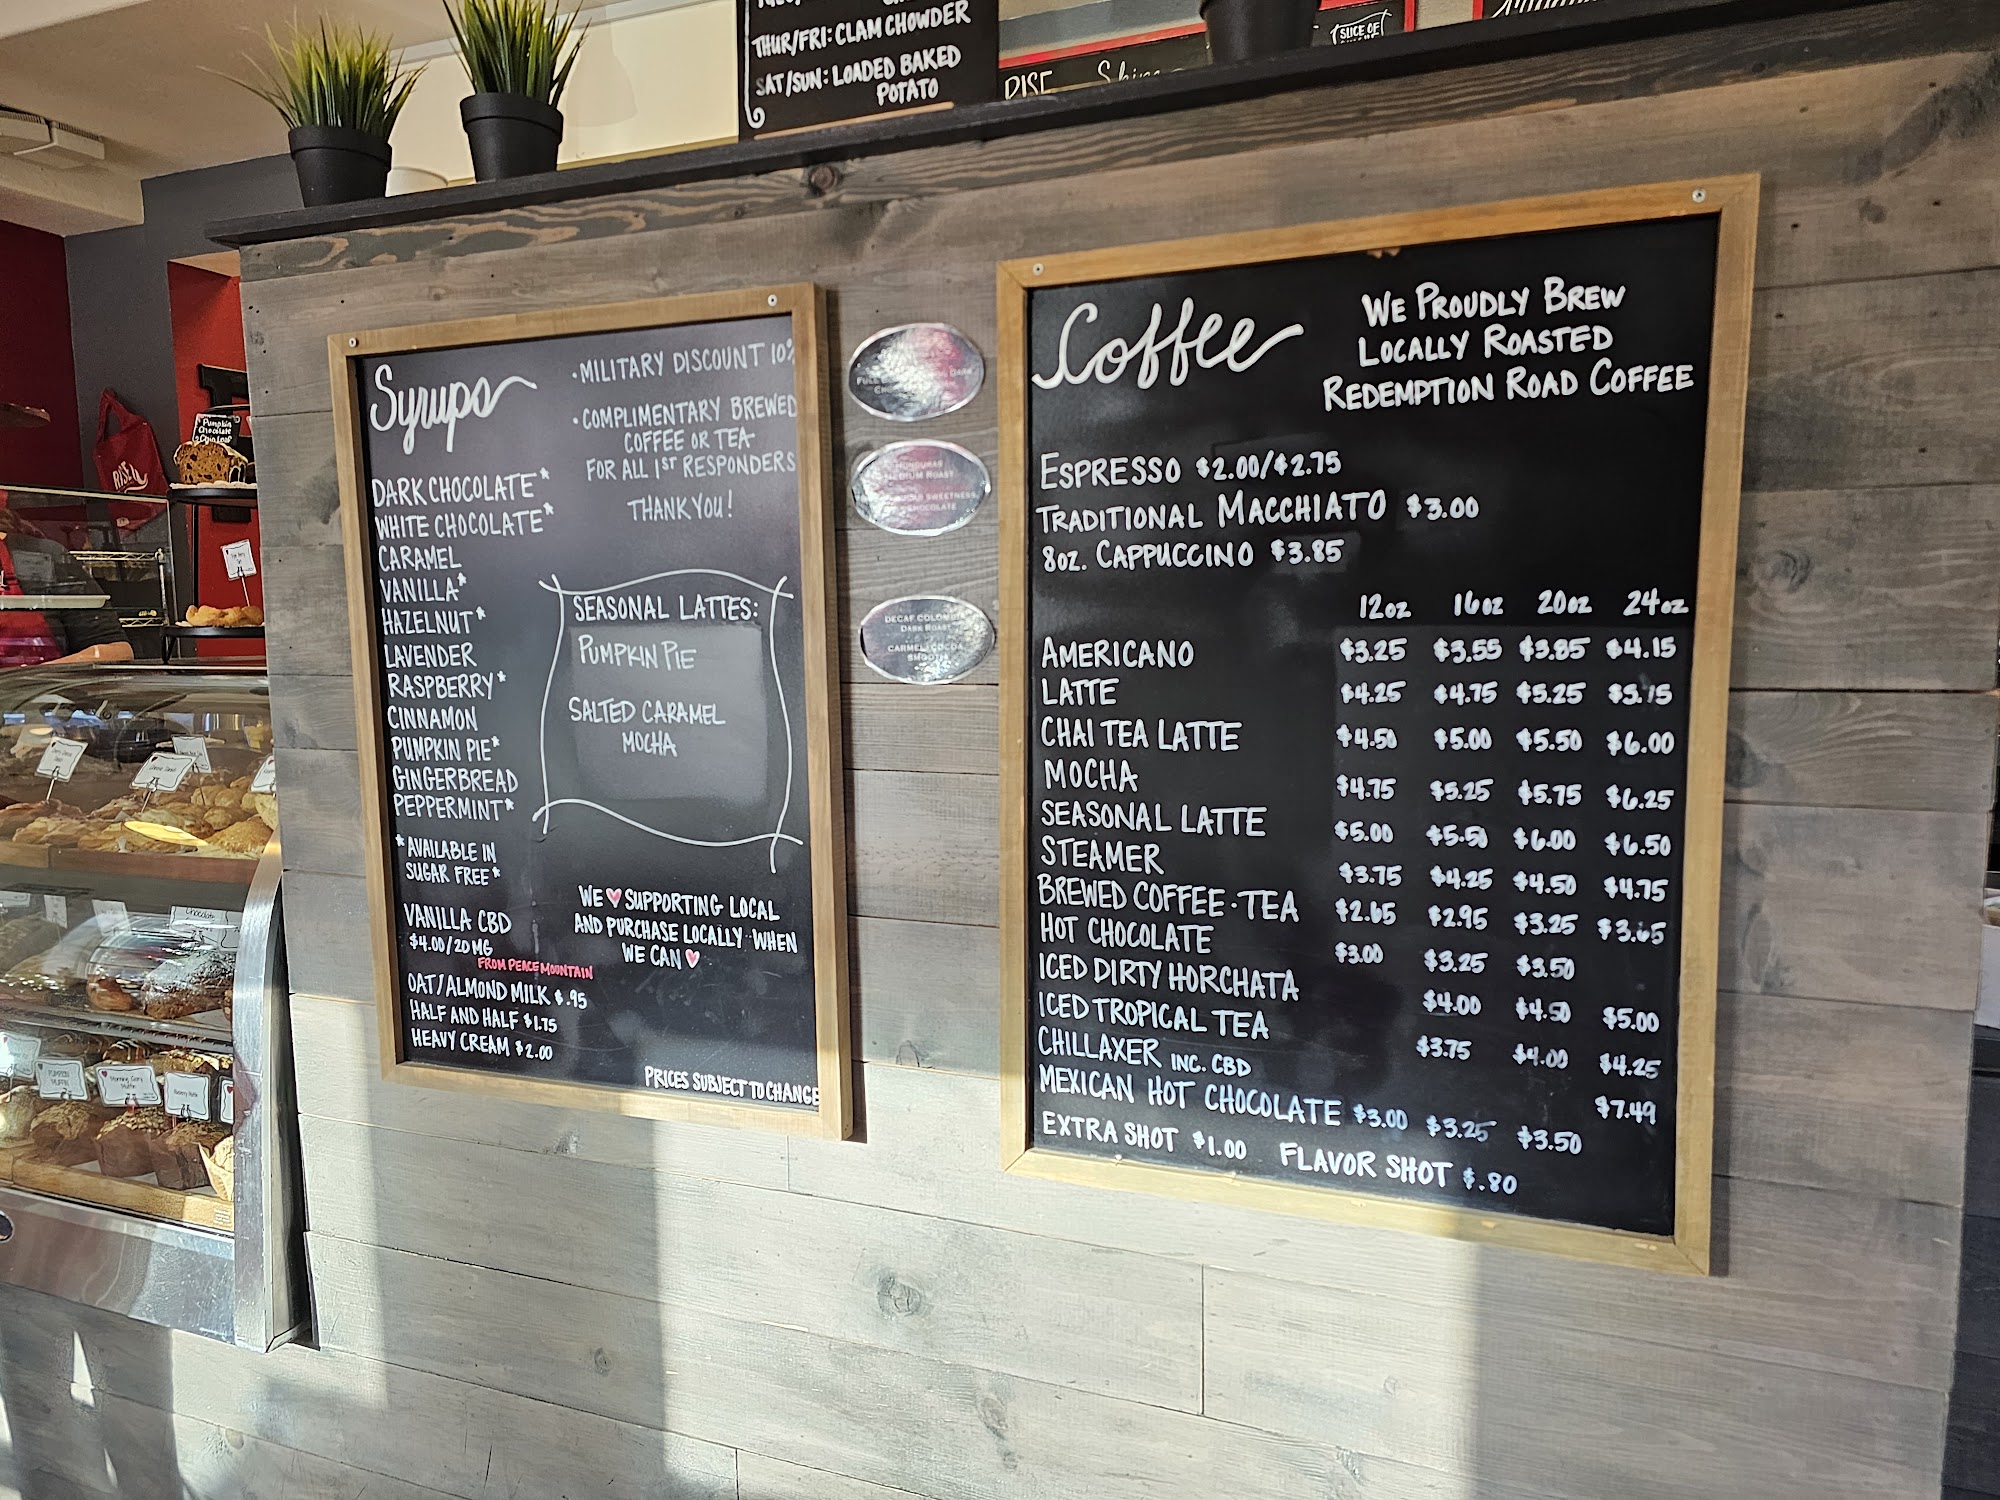 THUR/FRI: CLAM CHOWDER
SAT/SUN: LOADED BAKED
POTATO
RISE
SLICE OF
Pumpkin
Chocolate
RISE
Syrups
• MILITARY DISCOUNT 10%
• COMPLIMENTARY BREWED
COFFEE OR TEA
FOR ALL 1ST RESPONDERS
THANK YOU!
DARK CHOCOLATE*
WHITE CHOCOLATE*
CARAMEL
VANILLA*
HAZELNUT*
LAVENDER
RASPBERRY*
CINNAMON
PUMPKIN PIE*
GINGERBREAD
PEPPERMINT*
*AVAILABLE IN
SUGAR FREE*
VANILLA CBD
$4.00/20MG
FROM PEACE MOUNTAIN
OAT/ALMOND MILK $.95
HALF AND HALF $1.75
HEAVY CREAM $2.00
SEASONAL LATTES:
PUMPKIN PIE
SALTED CARAMEL
MOCHA
WE ♥ SUPPORTING LOCAL
AND PURCHASE LOCALLY WHEN
WE CAN ♥
PRICES SUBJECT TO CHANGE
HONDURAS
MEDIUM ROAST
SWEETNESS
CHOCOLATE
DECAF COLOMBIA
DARK ROAST
CARMEL, COCOA
SMOOTH
Coffee
WE PROUDLY BREW
LOCALLY ROASTED
REDEMPTION ROAD COFFEE
ESPRESSO $2.00/$2.75
TRADITIONAL MACCHIATO $3.00
8oz. CAPPUCCINO $3.85
12oz 16oz 20oz 24oz
AMERICANO $3.25 $3.55 $3.85 $4.15
LATTE $4.25 $4.75 $5.25 $5.75
CHAI TEA LATTE $4.50 $5.00 $5.50 $6.00
MOCHA $4.75 $5.25 $5.75 $6.25
SEASONAL LATTE $5.00 $5.50 $6.00 $6.50
STEAMER $3.75 $4.25 $4.50 $4.75
BREWED COFFEE • TEA $2.65 $2.95 $3.25 $3.65
HOT CHOCOLATE $3.00 $3.25 $3.50
ICED DIRTY HORCHATA $4.00 $4.50 $5.00
ICED TROPICAL TEA $3.75 $4.00 $4.25
CHILLAXER INC. CBD $7.49
MEXICAN HOT CHOCOLATE $3.00 $3.25 $3.50
EXTRA SHOT $1.00 FLAVOR SHOT $.80
Chocolate
PUMPKIN
MUFFIN
Morning Glory
Muffin